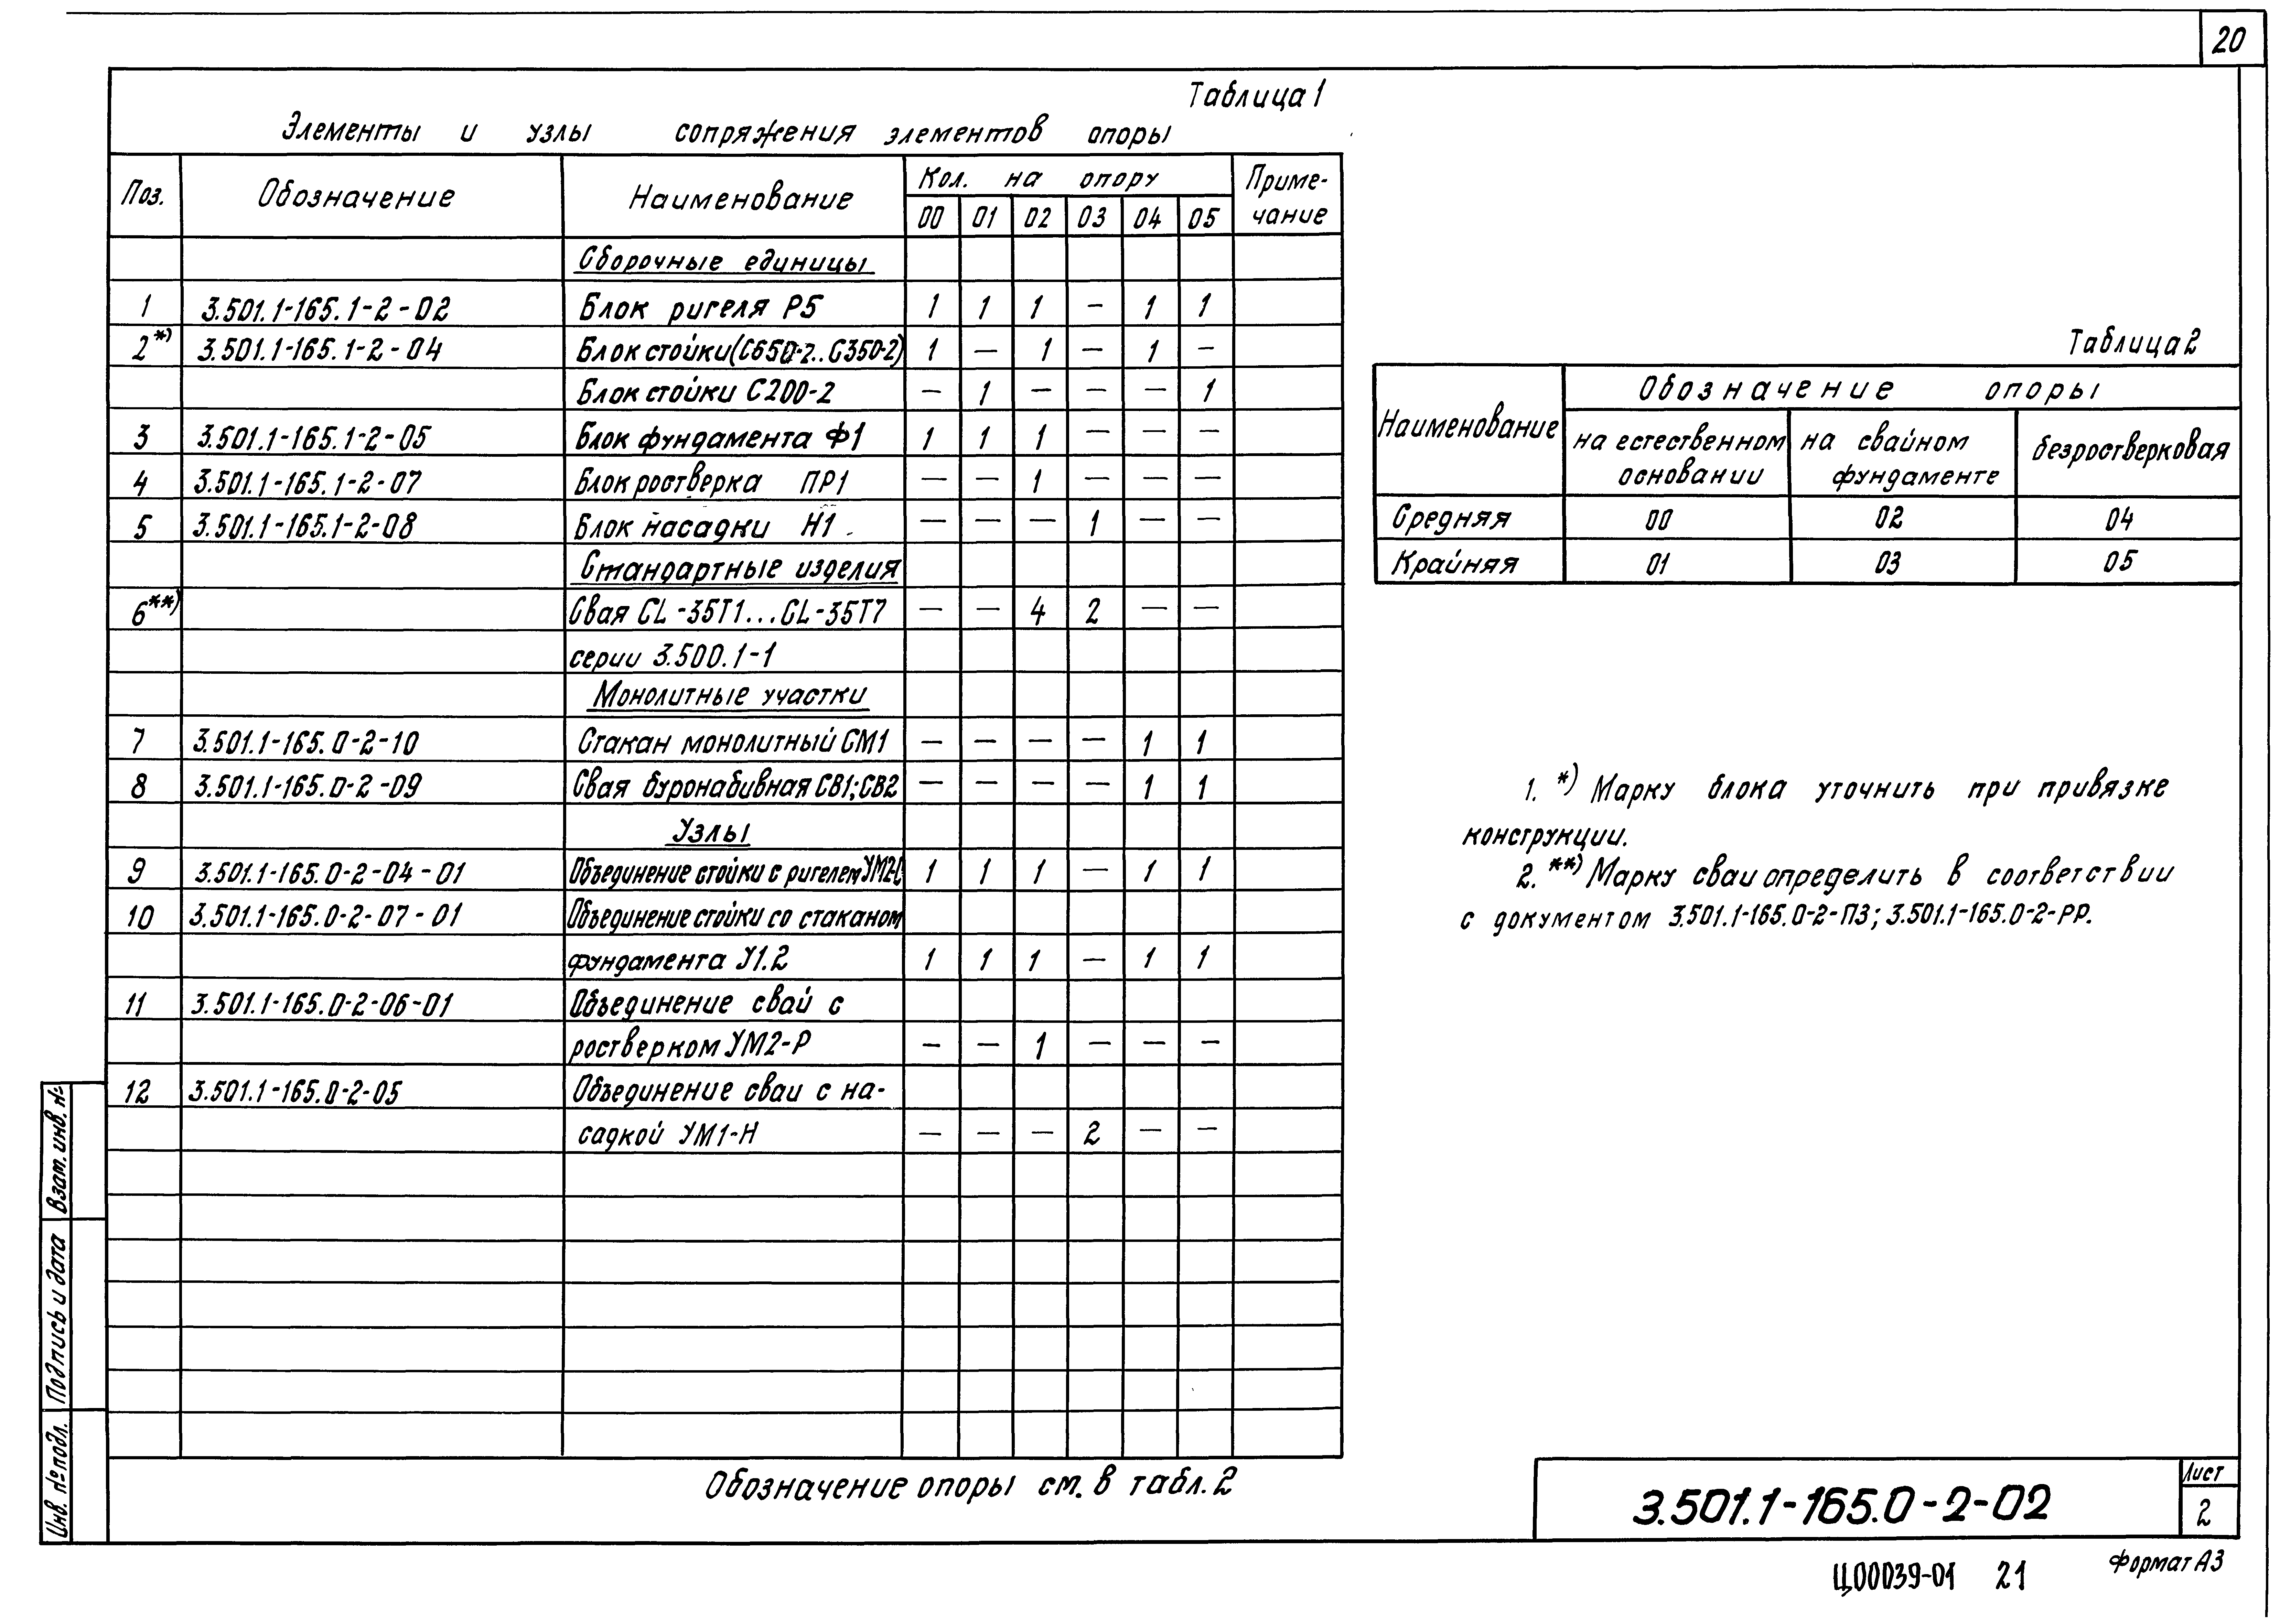 20
Таблица 1
Элементы и узлы сопряжения элементов опоры
Поз. Обозначение Наименование Кол. на опору Приме-чание
00 01 02 03 04 05
Сборочные единицы
1 3.501.1-165.1-2-02 Блок ригеля Р5 1 1 1 — 1 1
2*) 3.501.1-165.1-2-04 Блок стойки(С650-2..С350-2) 1 — 1 — 1 —
Блок стойки С200-2 — 1 — — — 1
3 3.501.1-165.1-2-05 Блок фундамента Ф1 1 1 1 — — —
4 3.501.1-165.1-2-07 Блок ростверка ПР1 — — 1 — — —
5 3.501.1-165.1-2-08 Блок насадки Н1 — — — 1 — —
Стандартные изделия
6**) Свая СL-35Т1...СL-35Т7 — — 4 2 — —
серии 3.500.1-1
Монолитные участки
7 3.501.1-165.0-2-10 Стакан монолитный СМ1 — — — — 1 1
8 3.501.1-165.0-2-09 Свая буронабивная СВ1;СВ2 — — — — 1 1
Узлы
9 3.501.1-165.0-2-04-01 Объединение стойки с ригелем УМ2-С 1 1 1 — 1 1
10 3.501.1-165.0-2-07-01 Объединение стойки со стаканом
фундамента У1.2 1 1 1 — 1 1
11 3.501.1-165.0-2-06-01 Объединение свай с
ростверком УМ2-Р — — 1 — — —
12 3.501.1-165.0-2-05 Объединение сваи с на-
садкой УМ1-Н — — — 2 — —
Обозначение опоры см. в табл. 2
Таблица 2
Наименование Обозначение опоры
на естественном основании на свайном фундаменте безростверковая
Средняя 00 02 04
Крайняя 01 03 05
1. *) Марку блока уточнить при привязке
конструкции.
2. **) Марку сваи определить в соответствии
с документом 3.501.1-165.0-2-ПЗ; 3.501.1-165.0-2-РР.
Взам. инв. №
Подпись и дата
Инв. № подл.
3.501.1-165.0-2-02
Лист
2
Ц00039-01 21
Формат А3